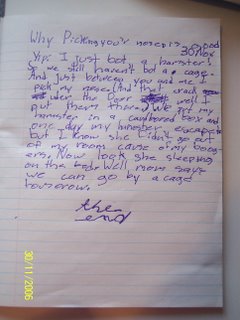 Why Picking your nose is a good
30 Nov
Yip! I just bot a hamster!
we still haven't bot a cage.
And just between you and me I
pick my nose. (And that crack
under the Door well I
put them there.) We put my
hamster in a cardbored box and
one day my hamster escapte
but I know she Didn't go out
of my room cause of my boog
ers. Now look she sleeping
on the bed. Well mom says
we can go by a cage
tomorow.
the
end
30/11/2006